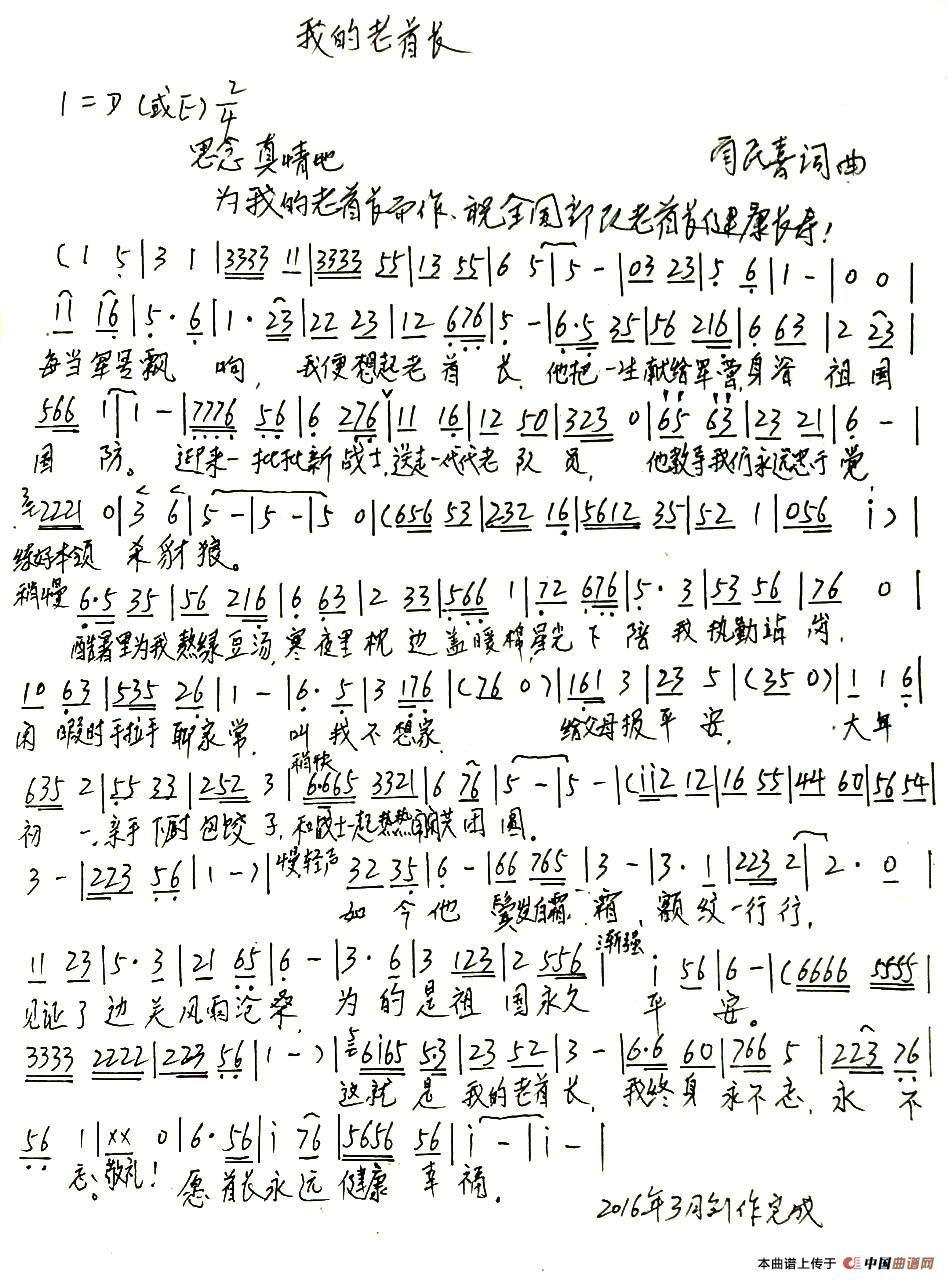 我的老首长
1=D (或E) 2/4
思念 真情地
民喜词曲
为我的老首长而作、祝全国部队老首长健康长寿!
(1 5|3 1|3333 11|3333 55|13 55|6 5|5 -|03 23|5 6|1 -|0 0|
11 16|5· 6|1· 23|22 23|12 676|5 -|6·5 35|56 216|6 63|2 23|
每当军号飘响, 我便想起老首长, 他把一生献给军营身 祖国
566 1|1 -|7776 56|6 276|11 16|12 50|323 0|65 63|23 21|6 -|
国防。 迎来一批批新战士,送走一代代老队员, 他教导我们永远忠于党,
2221 0|3 6|5 -|5 -|5 0|(656 53|232 16|5612 35|52 1|056 i)|
练好本领 杀豺狼。
稍慢 6·5 35|56 216|6 63|2 33|566 1|72 676|5· 3|53 56|76 0|
酷暑里为我熬绿豆汤,寒夜里枕边盖暖棉,星光下陪我执勤站岗,
10 63|535 26|1 -|6· 5|3 176|(76 0)|161 3|23 5|(35 0)|1 1 6|
闲暇时手拉手聊家常, 叫我不想家, 给父母报平安, 大年
稍快
635 2|55 33|252 3|6·665 3321|6 76|5 -|5 -|(ii2 12|16 55|44 60|56 54|
初一,亲手下厨包饺子,和战士一起热热闹闹共团圆。
3 -|223 56|1 -)|慢轻声 32 35|6 -|66 765|3 -|3· 1|223 2|2· 0|
如今他 鬓发白霜 霜, 额纹一行行,
渐强
11 23|5· 3|21 65|6 -|3· 6|3 123|2 556|i 56|6 -|(6666 5555|
见证了边关风雨沧桑, 为的是祖国永久平安。
3333 2222|223 56|1 -)|6i65 5·3|23 52|3 -|6·6 60|766 5|223 76|
这就是我的老首长, 我终身永不忘, 永不
56 1|xx 0|6· 56|i 76|5656 56|i -|i -|
忘。敬礼! 愿首长永远健康幸福。
2016年3月创作完成
本曲谱上传于 中国曲谱网